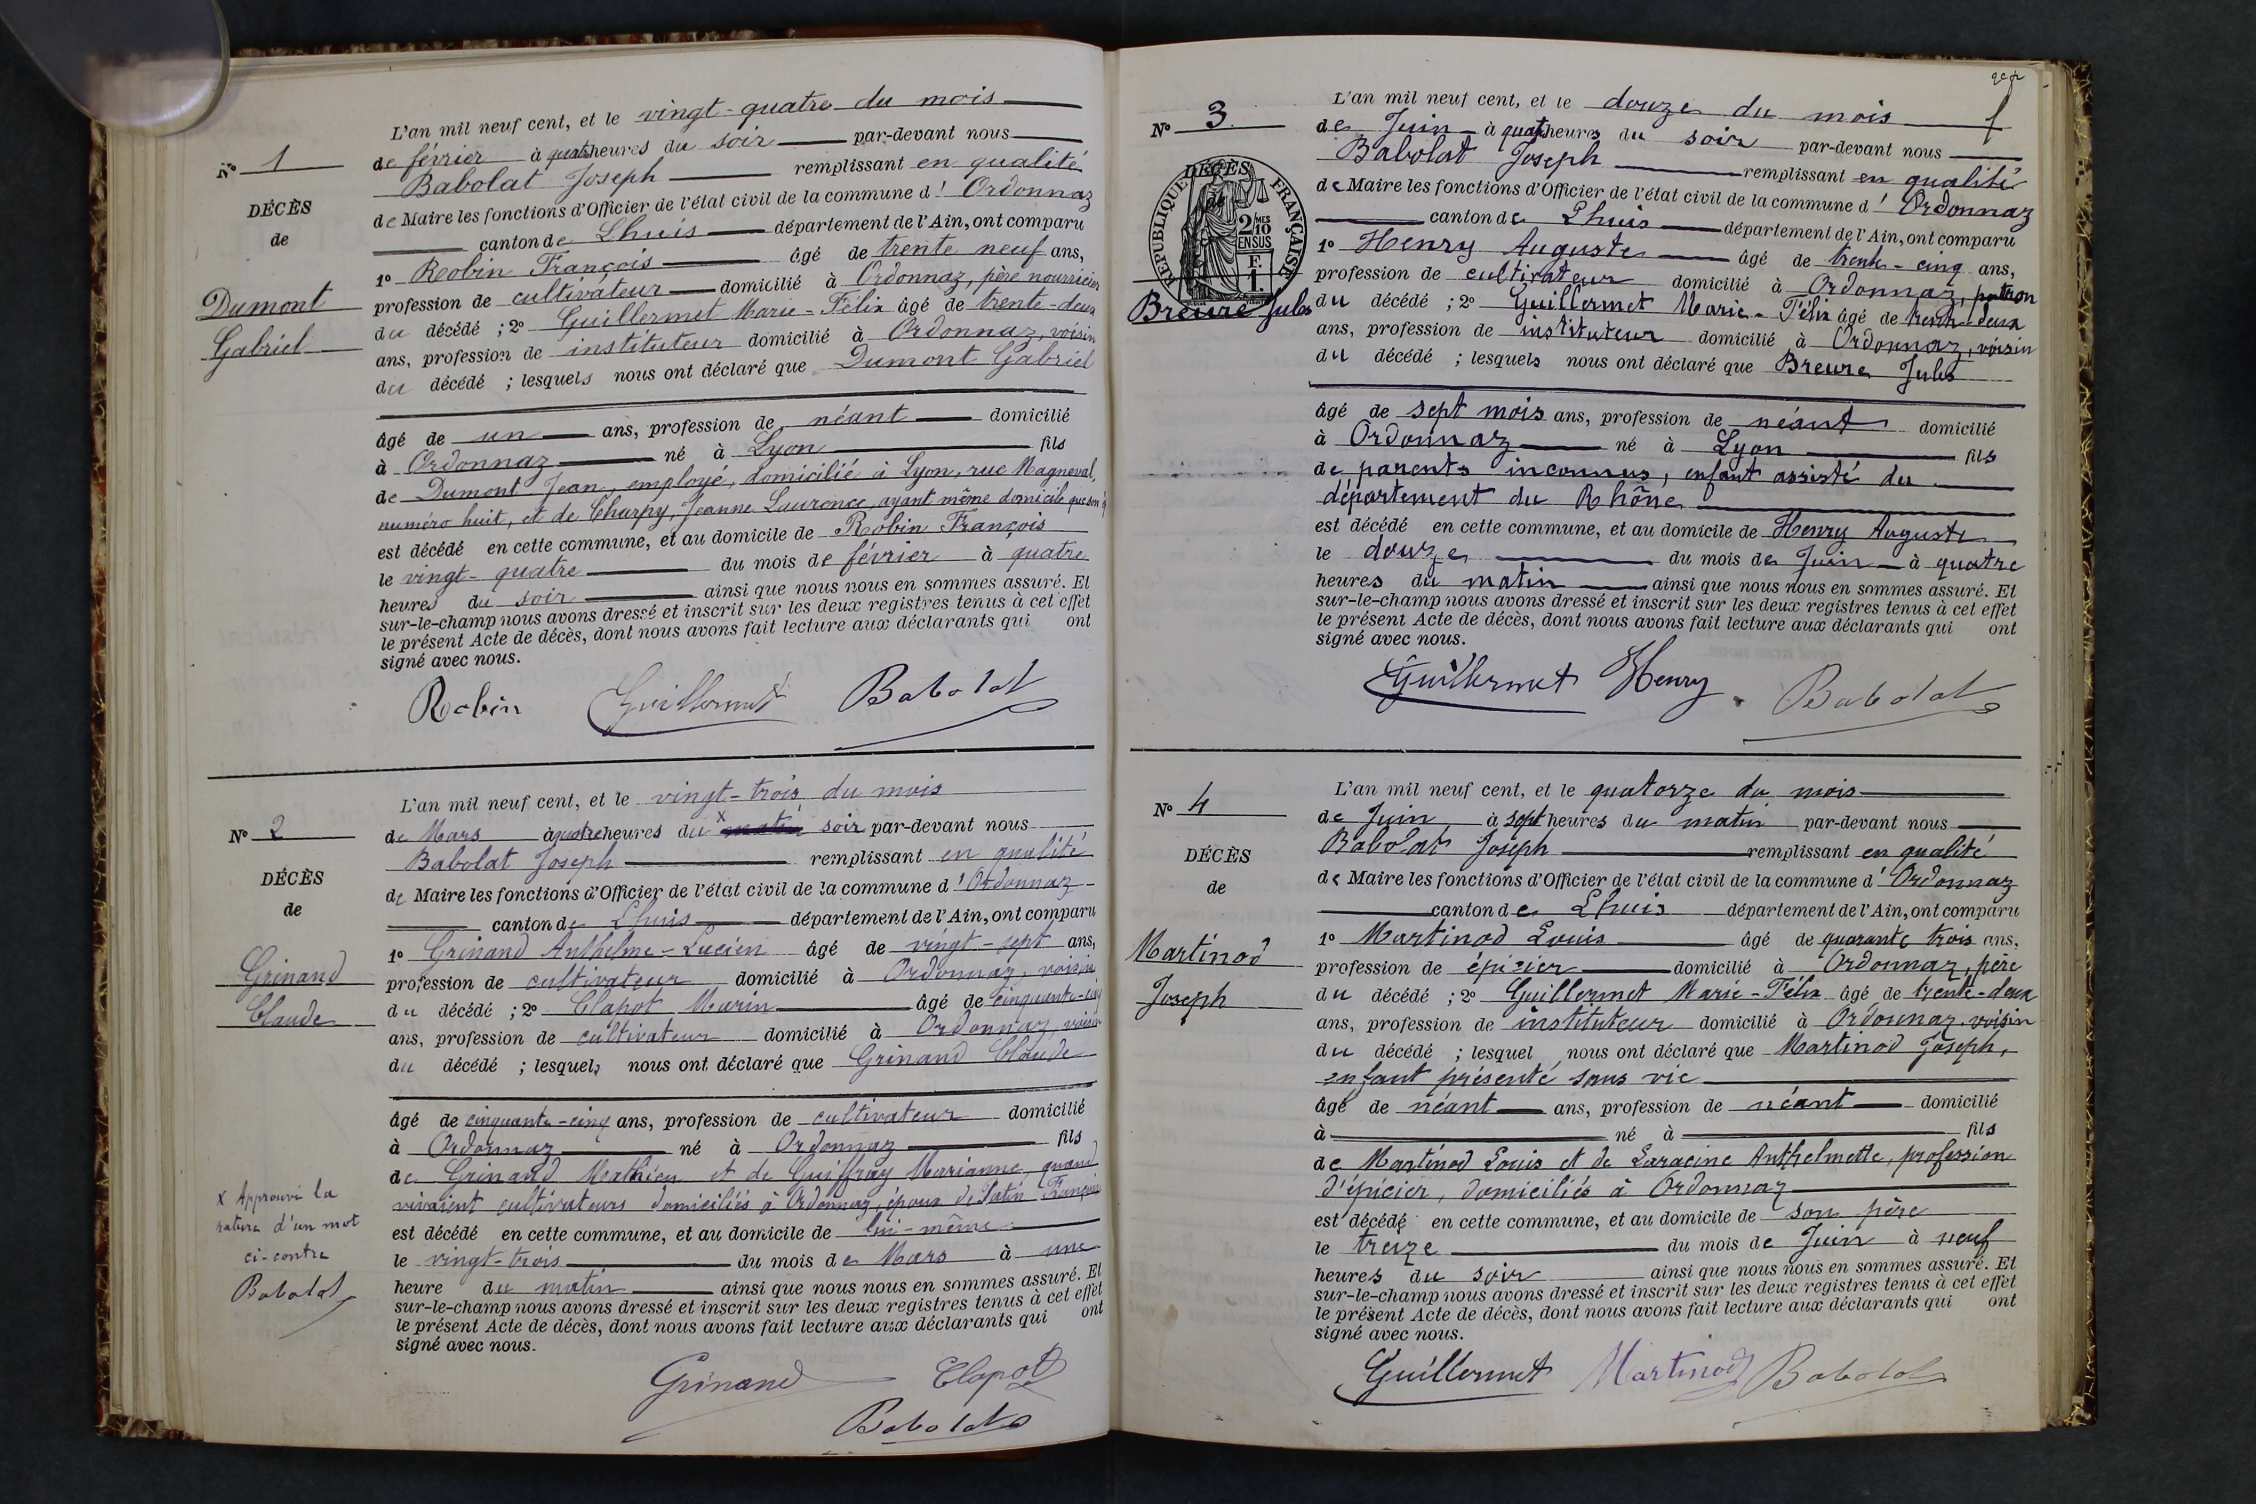 L'an mil neuf cent, et le vingt-quatre du mois
de février à quatre heures du soir par-devant nous
Babolat Joseph remplissant en qualité
de Maire les fonctions d'Officier de l'état civil de la commune d' Ordonnaz
canton de Lhuis département de l'Ain, ont comparu
1º Robin François âgé de trente neuf ans,
profession de cultivateur domicilié à Ordonnaz, père nourricier
du décédé ; 2º Guillermet Marie-Félix âgé de trente-deux
ans, profession de instituteur domicilié à Ordonnaz, voisin
du décédé ; lesquels nous ont déclaré que Dumont Gabriel
Nº 1
DÉCÈS
de
Dumont
Gabriel
âgé de un ans, profession de néant domicilié
à Ordonnaz né à Lyon fils
de Dumont Jean, employé, domicilié à Lyon, rue Magneval,
numéro huit, et de Charpy, Jeanne Laurence, ayant même domicile que son
est décédé en cette commune, et au domicile de Robin François
le vingt-quatre du mois de février à quatre
heures du soir ainsi que nous nous en sommes assuré. Et
sur-le-champ nous avons dressé et inscrit sur les deux registres tenus à cet effet
le présent Acte de décès, dont nous avons fait lecture aux déclarants qui ont
signé avec nous.
Robin Guillermet Babolat
L'an mil neuf cent, et le vingt-trois du mois
de Mars à quatre heures du x matin soir par-devant nous
Babolat Joseph remplissant en qualité
de Maire les fonctions d'Officier de l'état civil de la commune d' Ordonnaz
canton de Lhuis département de l'Ain, ont comparu
1º Grinand Anthelme-Lucien âgé de vingt-sept ans,
profession de cultivateur domicilié à Ordonnaz, voisin
du décédé ; 2º Clapot Marin âgé de cinquante-cinq
ans, profession de cultivateur domicilié à Ordonnaz, voisin
du décédé ; lesquels nous ont déclaré que Grinand Claude
Nº 2
DÉCÈS
de
Grinand
Claude
âgé de cinquante-cinq ans, profession de cultivateur domicilié
à Ordonnaz né à Ordonnaz fils
de Grinand Mathieu et de Guiffray Marianne, quand
vivaient cultivateurs domiciliés à Ordonnaz, époux de Satin Françoise
est décédé en cette commune, et au domicile de lui-même
le vingt-trois du mois de Mars à une
heure du matin ainsi que nous nous en sommes assuré. Et
sur-le-champ nous avons dressé et inscrit sur les deux registres tenus à cet effet
le présent Acte de décès, dont nous avons fait lecture aux déclarants qui ont
signé avec nous.
x Approuvé la
rature d'un mot
ci-contre
Babolat
Grinand Clapot
Babolat
L'an mil neuf cent, et le douze du mois
de Juin à quatre heures du soir par-devant nous
Babolat Joseph remplissant en qualité
de Maire les fonctions d'Officier de l'état civil de la commune d' Ordonnaz
canton de Lhuis département de l'Ain, ont comparu
1º Henry Auguste âgé de trente-cinq ans,
profession de cultivateur domicilié à Ordonnaz, patron
du décédé ; 2º Guillermet Marie-Félix âgé de trente-deux
ans, profession de instituteur domicilié à Ordonnaz, voisin
du décédé ; lesquels nous ont déclaré que Breure Jules
Nº 3
DÉCÈS
de
RÉPUBLIQUE FRANÇAISE
2/10 MES
EN SUS
F.
1.
Breure Jules
âgé de sept mois ans, profession de néant domicilié
à Ordonnaz né à Lyon fils
de parents inconnus, enfant assisté du
département du Rhône
est décédé en cette commune, et au domicile de Henry Auguste
le douze du mois de Juin à quatre
heures du matin ainsi que nous nous en sommes assuré. Et
sur-le-champ nous avons dressé et inscrit sur les deux registres tenus à cet effet
le présent Acte de décès, dont nous avons fait lecture aux déclarants qui ont
signé avec nous.
Guillermet Henry Babolat
L'an mil neuf cent, et le quatorze du mois
de Juin à sept heures du matin par-devant nous
Babolat Joseph remplissant en qualité
de Maire les fonctions d'Officier de l'état civil de la commune d' Ordonnaz
canton de Lhuis département de l'Ain, ont comparu
1º Martinod Louis âgé de quarante trois ans,
profession de épicier domicilié à Ordonnaz, père
du décédé ; 2º Guillermet Marie-Félix âgé de trente-deux
ans, profession de instituteur domicilié à Ordonnaz, voisin
du décédé ; lesquel nous ont déclaré que Martinod Joseph,
enfant présenté sans vie
Nº 4
DÉCÈS
de
Martinod
Joseph
âgé de néant ans, profession de néant domicilié
à né à fils
de Martinod Louis et de Laracine Anthelmette, profession
d'épicier, domiciliés à Ordonnaz
est décédé en cette commune, et au domicile de son père
le treize du mois de Juin à neuf
heures du soir ainsi que nous nous en sommes assuré. Et
sur-le-champ nous avons dressé et inscrit sur les deux registres tenus à cet effet
le présent Acte de décès, dont nous avons fait lecture aux déclarants qui ont
signé avec nous.
Guillermet Martinod Babolat